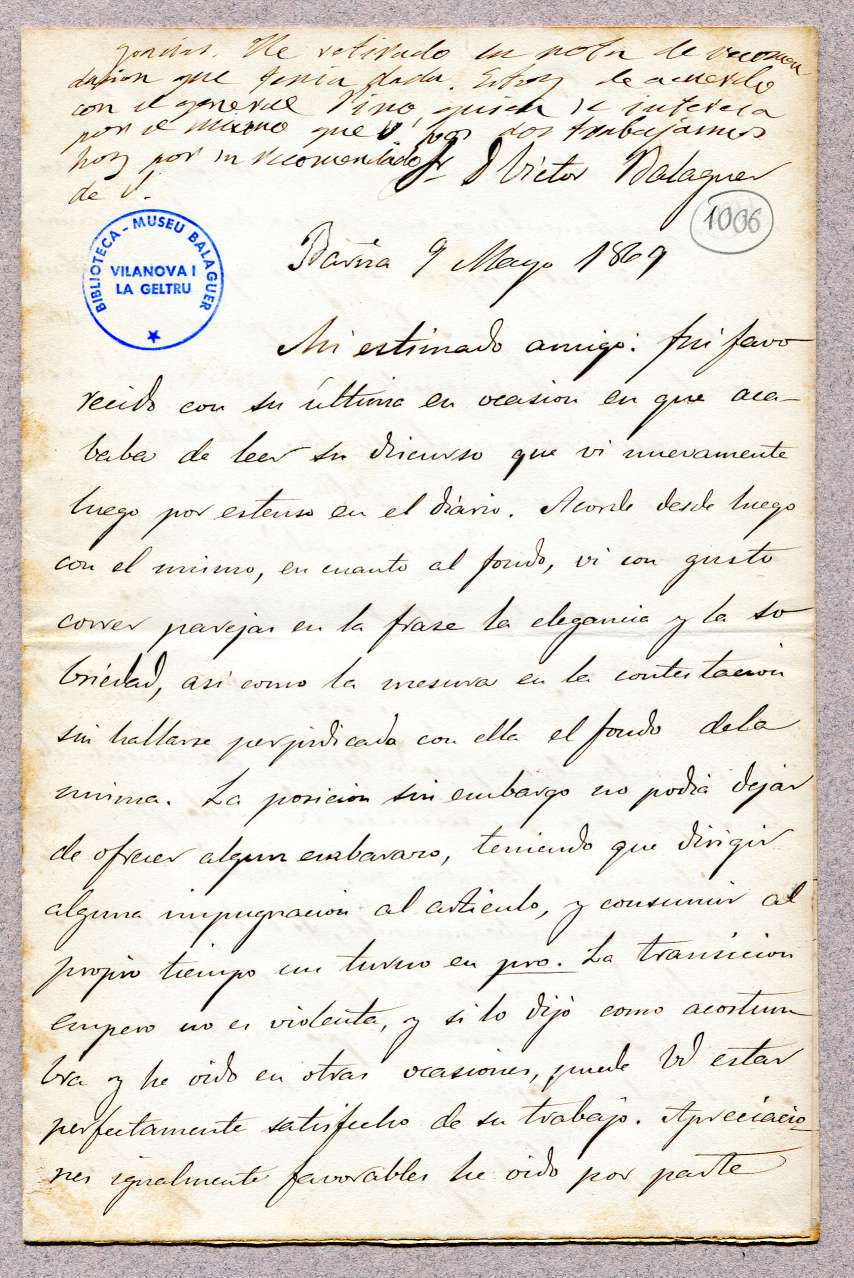 gorias. He retirado mi nota de recomen
dacion que tenia dada. Estoy de acuerdo
con el general Pino, quien se interesa
por el mismo que V, y los dos trabajamos
hoy por su recomendado
de V.
Sr. D Victor Balaguer
1006
BIBLIOTECA - MUSEU BALAGUER
VILANOVA I
LA GELTRU
Barna 9 Mayo 1869
Mi estimado amigo: fui favo
recido con su última en ocasion en que aca-
baba de leer su discurso que vi nuevamente
luego por estenso en el diário. Acorde desde luego
con el mismo, en cuanto al fondo, vi con gusto
correr parejas en la frase la elegancia y la so
briedad, asi como la mesura en la contestacion
sin hallarse perjudicada con ella el fondo dela
misma. La posicion sin embargo no podia dejar
de ofrecer algun embarazo, teniendo que dirigir
alguna impugnacion al articulo, y consumir al
propio tiempo un turno en pro. La transicion
empero no es violenta, y si lo dijó como acostum
bra y he oido en otras ocasiones, puede Vd estar
perfectamente satisfecho de su trabajo. Apreciacio-
nes igualmente favorables he oido por parte